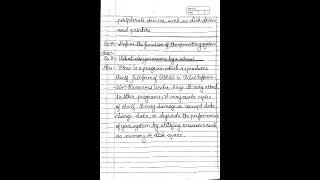 peripheral devices, such as disk drives
and printers
Q.7- Define the function of the operating system
Q.8- What do you mean by a virus?
Ans- Virus is a program which reproduces
itself. Full form of VIRUS is Vital Information
Resources Under Siege. It may attach
to other programs, it may create copies
of itself. It may damage or corrupt data,
change data, or degrade the performance
of your system by utilizing resources such
as memory or disk space.